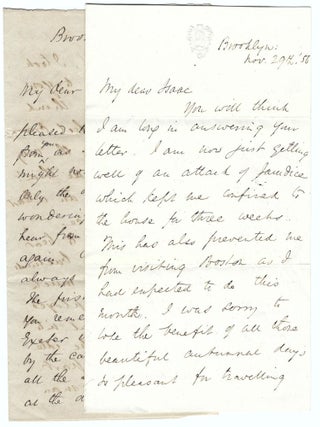 Brooklyn.
Nov. 29th. '56
My dear Isaac
You will think
I am long in answering your
letter. I am now just getting
well of an attack of jaundice
which kept me confined to
the house for three weeks.
This has also prevented me
from visiting Boston as I
had expected to do this
month. I was sorry to
lose the benefit of all those
beautiful autumnal days
so pleasant for travelling
Broo
My dear
pleased t
you
Born as
might ve
only the
wondering
hear from
again
always
The first
you reme
Exeter
by the ca
all the
at the d